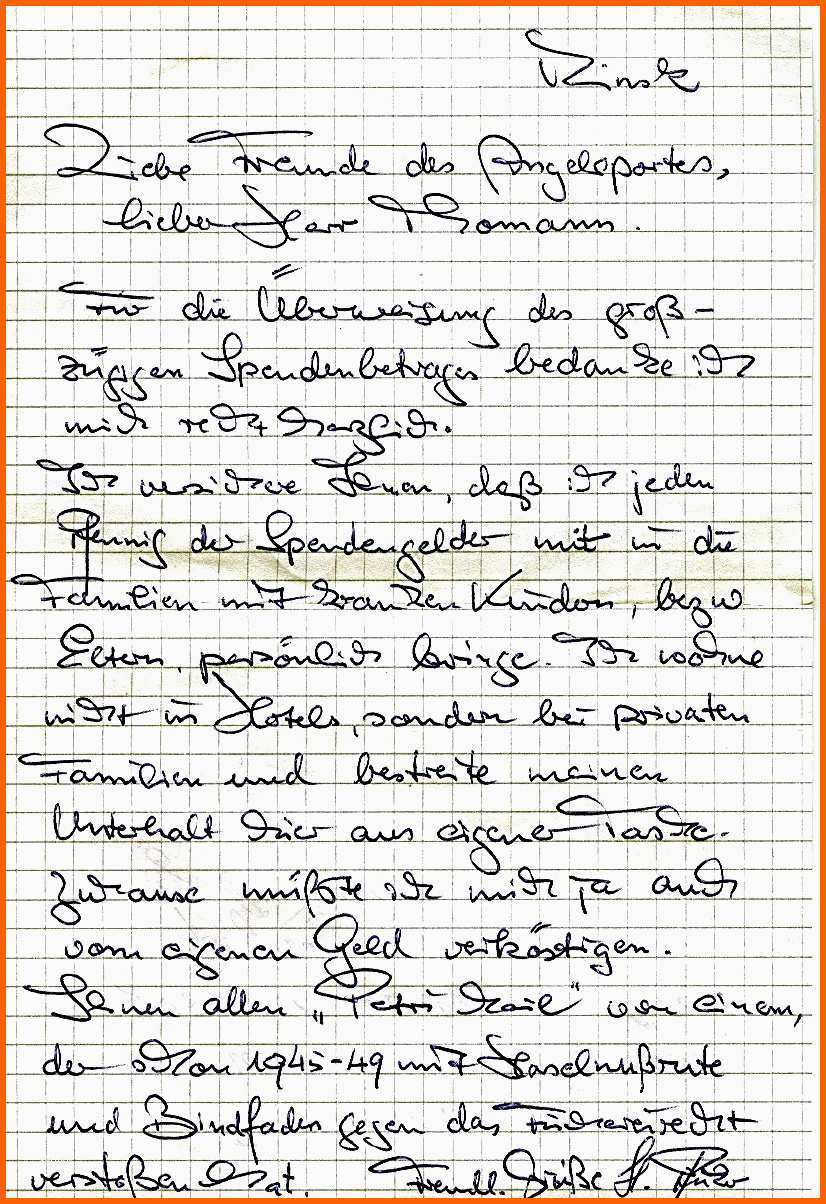 Pinsk
Liebe Freunde des Angelsportes,
lieber Herr Thomann.
Für die Überweisung des groß-
zügigen Spendenbetrages bedanke ich
mich recht herzlich.
Ich versichere Ihnen, daß ich jeden
Pfennig der Spendengelder mit in die
Familien mit kranken Kindern, bezw
Eltern, persönlich bringe. Ich wohne
nicht in Hotels, sondern bei privaten
Familien und bestreite meinen
Unterhalt hier aus eigener Tasche.
Zuhause müßte ich mich ja auch
vom eigenen Geld verköstigen.
Ihnen allen „Petri Heil" von einem,
der schon 1945-49 mit Haselnußrute
und Bindfaden gegen das Fischereirecht
verstoßen hat. Freundl. Grüße H.